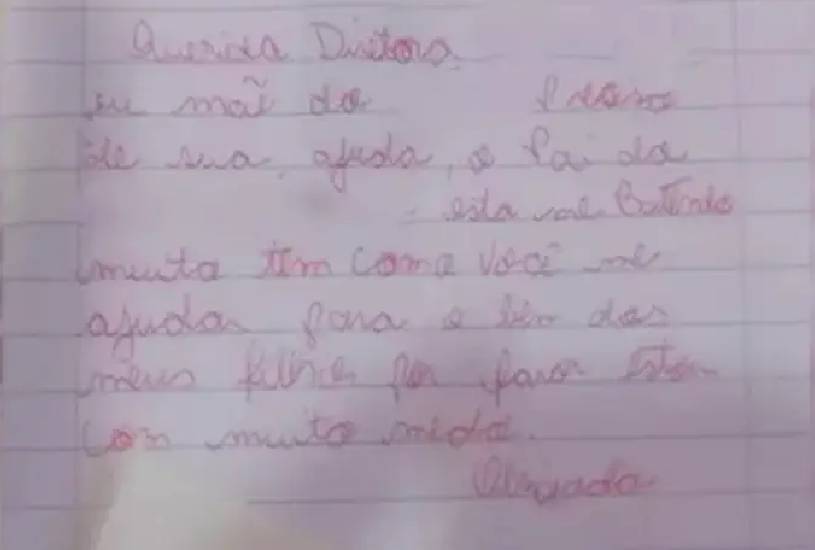 Querida Diretora
eu mãe da preciso
de sua, ajuda, o Pai da
esta me Batendo
muito tem como você me
ajudar para o bem dos
meus filhos por favor Estou
com muito medo.
Obrigada